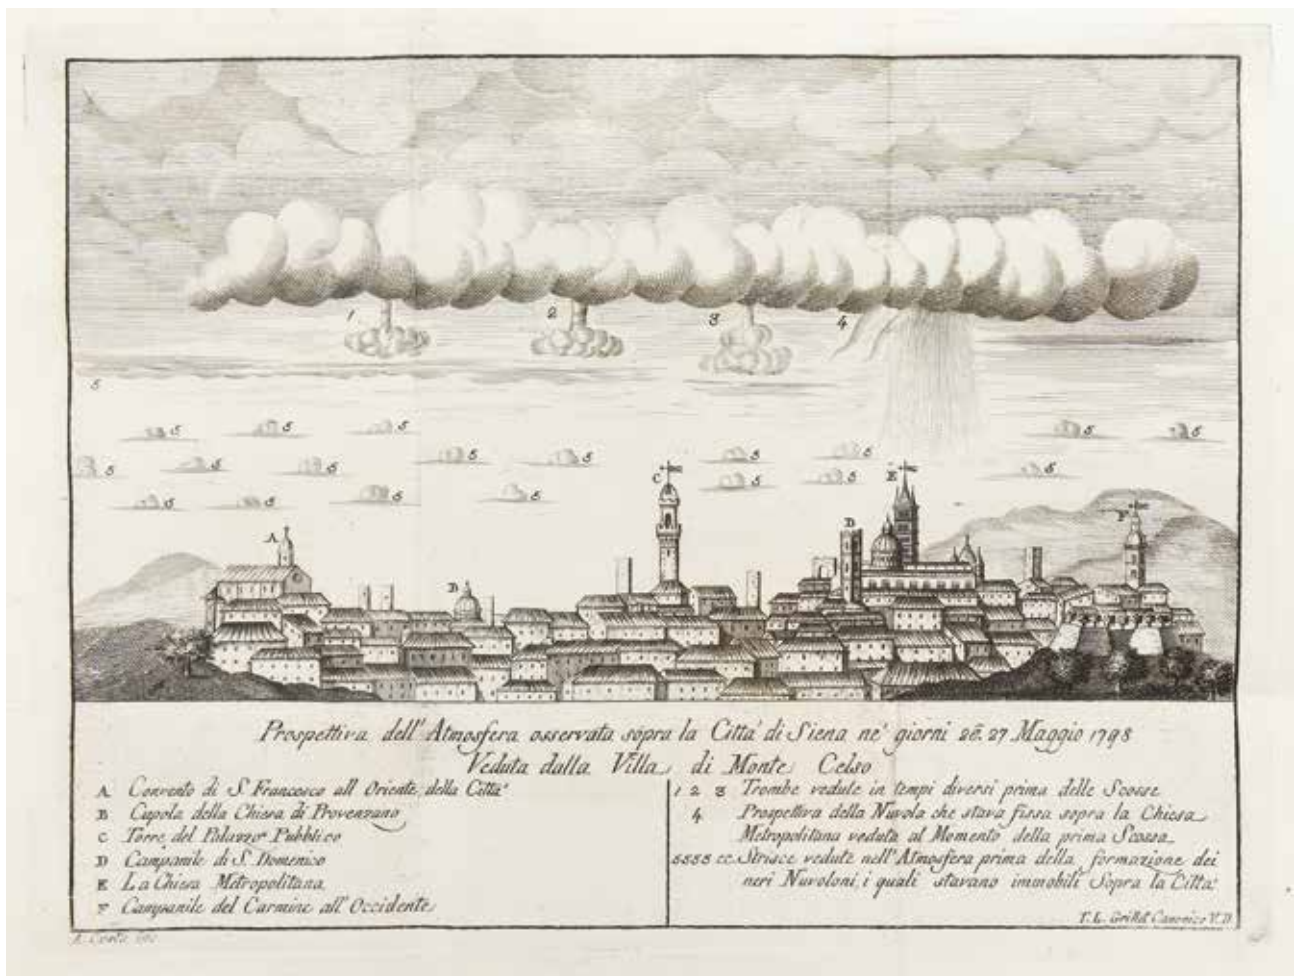 1
2
3
4
5
5 5 5
5 5 5 5 5
5 5 5 5 5 5
5 5 5 5 5 5
C
E
F
A
D
B
Prospettiva dell'Atmosfera osservata sopra la Città di Siena ne' giorni 26. 27 Maggio 1798
Veduta dalla Villa di Monte Celso
A Convento di S. Francesco all'Oriente della Città
B Cupola della Chiesa di Provenzano
C Torre del Palazzo Pubblico
D Campanile di S. Domenico
E La Chiesa Metropolitana
F Campanile del Carmine all'Occidente
1 2 3 Trombe vedute in tempi diversi prima delle Scosse
4 Prospettiva della Nuvola che stava fissa sopra la Chiesa
Metropolitana veduta al Momento della prima Scossa
5555 ec. Strisce vedute nell'Atmosfera prima della formazione dei
neri Nuvoloni, i quali stavano immobili Sopra la Città
T. L. Canonico V. D.
A. Costa inc.